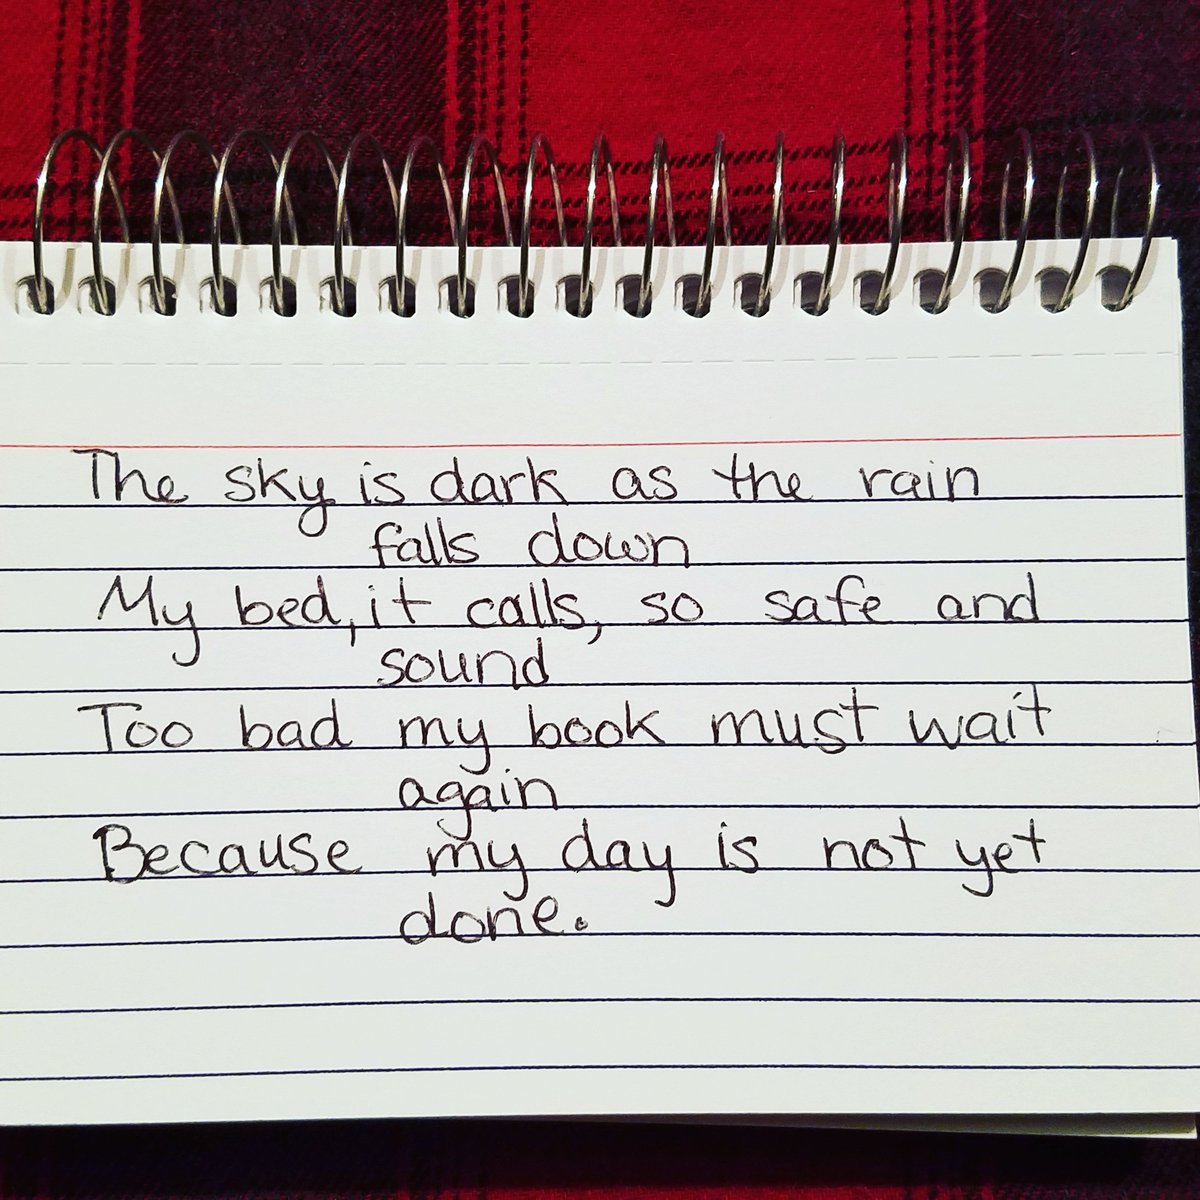 The sky is dark as the rain
falls down
My bed, it calls, so safe and
sound
Too bad my book must wait
again
Because my day is not yet
done.